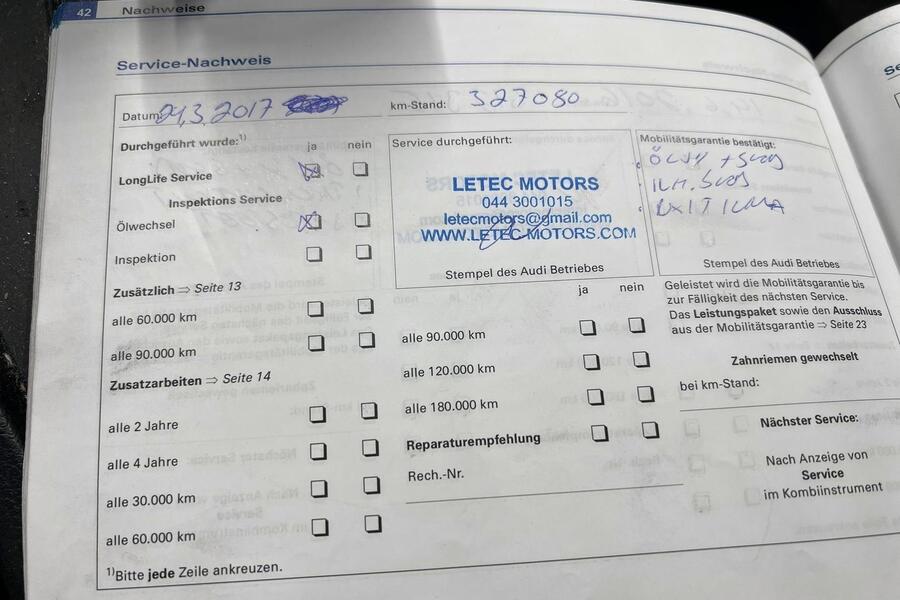 42 Nachweise
Service-Nachweis
Datum: 21.3.2017
km-Stand: 327080
Durchgeführt wurde:1)
ja nein
LongLife Service
Inspektions Service
Ölwechsel
Inspektion
Zusätzlich ⇒ Seite 13
alle 60.000 km
alle 90.000 km
Zusatzarbeiten ⇒ Seite 14
alle 2 Jahre
alle 4 Jahre
alle 30.000 km
alle 60.000 km
1)Bitte jede Zeile ankreuzen.
Service durchgeführt:
LETEC MOTORS
044 3001015
letecmotors@gmail.com
WWW.LETEC-MOTORS.COM
Stempel des Audi Betriebes
ja nein
alle 90.000 km
alle 120.000 km
alle 180.000 km
Reparaturempfehlung
Rech.-Nr.
Mobilitätsgarantie bestätigt:
Stempel des Audi Betriebes
Geleistet wird die Mobilitätsgarantie bis
zur Fälligkeit des nächsten Service.
Das Leistungspaket sowie den Ausschluss
aus der Mobilitätsgarantie ⇒ Seite 23
Zahnriemen gewechselt
bei km-Stand:
Nächster Service:
Nach Anzeige von
Service
im Kombiinstrument